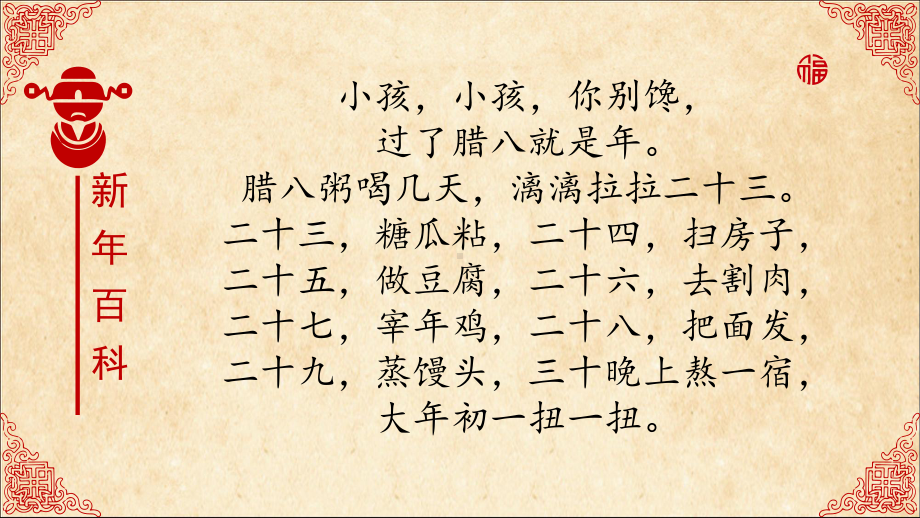 新年百科
福
小孩，小孩，你别馋，
过了腊八就是年。
腊八粥喝几天，漓漓拉拉二十三。
二十三，糖瓜粘，二十四，扫房子，
二十五，做豆腐，二十六，去割肉，
二十七，宰年鸡，二十八，把面发，
二十九，蒸馒头，三十晚上熬一宿，
大年初一扭一扭。